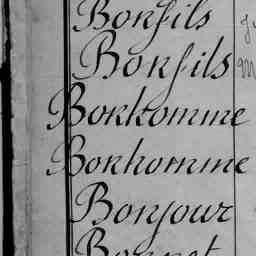 Bonfils
Bonfils
Bonhomme
Bonhomme
Bonjour
Bonnet